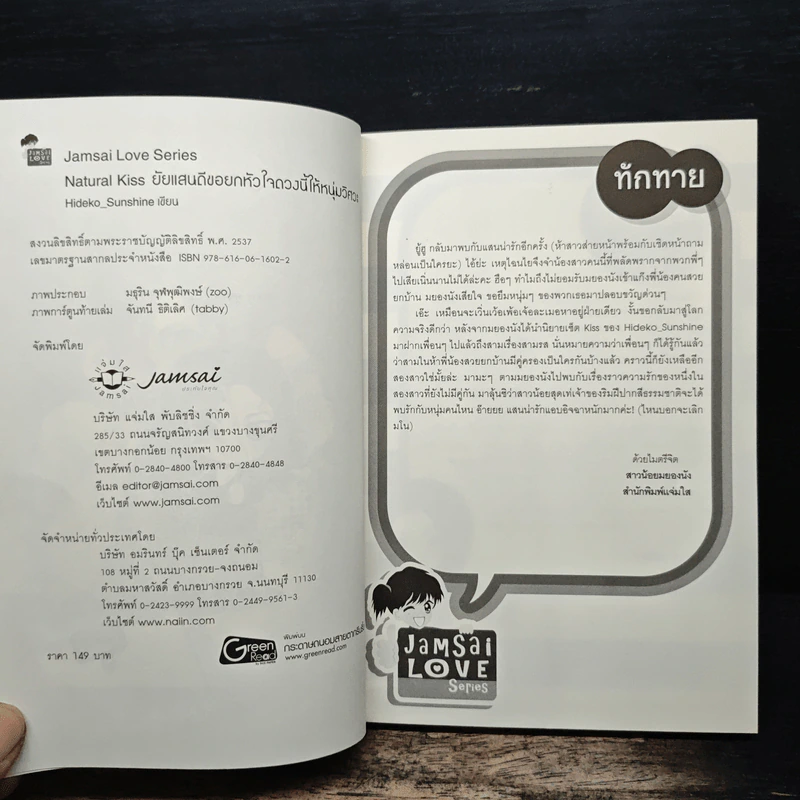 JAMSAI
LOVE
Jamsai Love Series
Natural Kiss ยัยแสนดีขอยกหัวใจดวงนี้ให้หนุ่มวิศวะ
Hideko_Sunshine เขียน
สงวนลิขสิทธิ์ตามพระราชบัญญัติลิขสิทธิ์ พ.ศ. 2537
เลขมาตรฐานสากลประจำหนังสือ ISBN 978-616-06-1602-2
ภาพประกอบ มธุริน จุฬพุฒิพงษ์ (zoo)
ภาพการ์ตูนท้ายเล่ม จันทนี ธิติเลิศ (tabby)
จัดพิมพ์โดย
แจ่มใส
Jamsai
jamsai
บริษัท แจ่มใส พับลิชชิ่ง จำกัด
285/33 ถนนจรัญสนิทวงศ์ แขวงบางขุนศรี
เขตบางกอกน้อย กรุงเทพฯ 10700
โทรศัพท์ 0-2840-4800 โทรสาร 0-2840-4848
อีเมล editor@jamsai.com
เว็บไซต์ www.jamsai.com
จัดจำหน่ายทั่วประเทศโดย
บริษัท อมรินทร์ บุ๊ค เซ็นเตอร์ จำกัด
108 หมู่ที่ 2 ถนนบางกรวย-จงถนอม
ตำบลมหาสวัสดิ์ อำเภอบางกรวย จ.นนทบุรี 11130
โทรศัพท์ 0-2423-9999 โทรสาร 0-2449-9561-3
เว็บไซต์ www.naiin.com
ราคา 149 บาท
Green
Read
พิมพ์บน
กระดาษถนอมสายตากรีนรี้ด
www.greenread.com
ทักทาย
ยู้ฮู กลับมาพบกับแสนน่ารักอีกครั้ง (ห้าสาวส่ายหน้าพร้อมกับเชิดหน้าถาม
หล่อนเป็นใครยะ) ไอ้ย่ะ เหตุไฉนไยจึงจำน้องสาวคนนี้ที่พลัดพรากจากพวกพี่ๆ
ไปเสียเนิ่นนานไม่ได้ล่ะคะ ฮือๆ ทำไมถึงไม่ยอมรับมยองนังเข้าแก๊งพี่น้องคนสวย
ยกบ้าน มยองนังเสียใจ ขอยืมหนุ่มๆ ของพวกเธอมาปลอบขวัญด่วนๆ
เอ๊ะ เหมือนจะเวิ่นเว้อเพ้อเจ้อละเมอหาอยู่ฝ่ายเดียว งั้นขอกลับมาสู่โลก
ความจริงดีกว่า หลังจากมยองนังได้นำนิยายเซ็ต Kiss ของ Hideko_Sunshine
มาฝากเพื่อนๆ ไปแล้วถึงสามเรื่องสามรส นั่นหมายความว่าเพื่อนๆ ก็ได้รู้กันแล้ว
ว่าสามในห้าพี่น้องสวยยกบ้านมีคู่ครองเป็นใครกันบ้างแล้ว คราวนี้ก็ยังเหลืออีก
สองสาวใช่มั้ยล่ะ มามะๆ ตามมยองนังไปพบกับเรื่องราวความรักของหนึ่งใน
สองสาวที่ยังไม่มีคู่กัน มาลุ้นซิว่าสาวน้อยสุดเท่เจ้าของริมฝีปากสีธรรมชาติจะได้
พบรักกับหนุ่มคนไหน อ๊ายยย แสนน่ารักแอบอิจฉาหนักมากค่ะ! (ไหนบอกจะเลิก
มโน)
ด้วยไมตรีจิต
สาวน้อยมยองนัง
สำนักพิมพ์แจ่มใส
JAMSAI
LOVE
Series